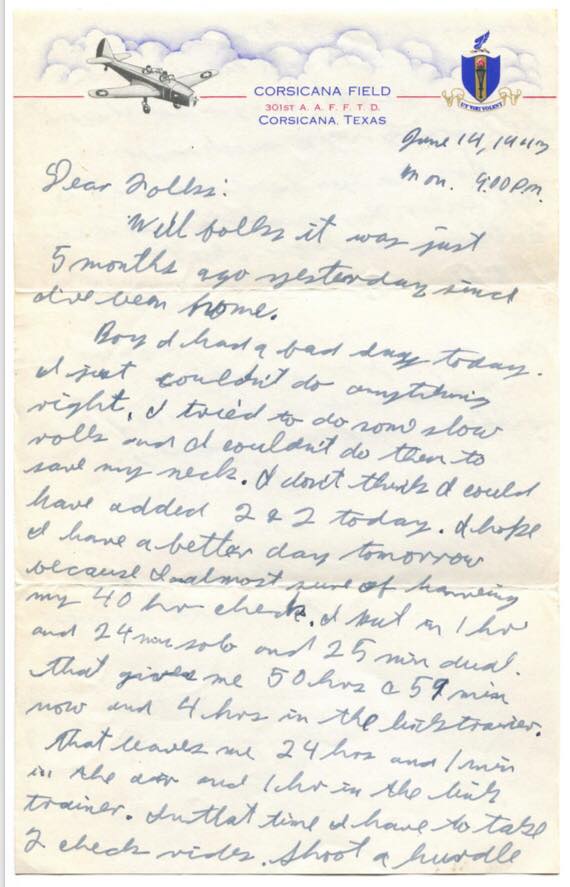 CORSICANA FIELD
301ST A. A. F. F. T. D.
CORSICANA, TEXAS
UT VIRI VOLENT
June 14, 1943
Mon. 9:00 P.m.
Dear Folks:
Well folks it was just
5 months ago yesterday since
I've been home.
Boy I had a bad day today.
I just couldn't do anything
right. I tried to do some slow
rolls and I couldn't do them to
save my neck. I don't think I could
have added 2 & 2 today. I hope
I have a better day tomorrow
because I almost sure of having
my 40 hr check. I put in 1 hr
and 24 min solo and 25 min dual.
that gives me 50 hrs & 59 min
now and 4 hrs in the link trainer.
That leaves me 24 hrs and 1 min
in the air and 1 hr in the link
trainer. In that time I have to take
2 check rides. Shoot a hurdle